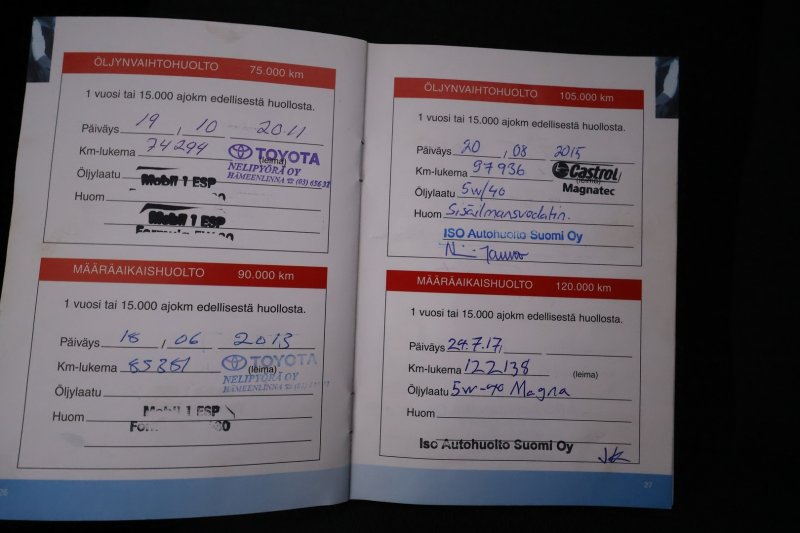 ÖLJYNVAIHTOHUOLTO 75.000 km
1 vuosi tai 15.000 ajokm edellisestä huollosta.
Päiväys 19 / 10 2011
Km-lukema 74294 (leima)
TOYOTA
NELIPYÖRÄ OY
HÄMEENLINNA ☎ (03) 656 37
Öljylaatu Mobil 1 ESP
Huom
Mobil 1 ESP
MÄÄRÄAIKAISHUOLTO 90.000 km
1 vuosi tai 15.000 ajokm edellisestä huollosta.
Päiväys 18 / 06 2013
Km-lukema 85381 (leima)
TOYOTA
NELIPYÖRÄ OY
HÄMEENLINNA
Öljylaatu
Mobil 1 ESP
Huom
26
ÖLJYNVAIHTOHUOLTO 105.000 km
1 vuosi tai 15.000 ajokm edellisestä huollosta.
Päiväys 20 / 08 2015
Km-lukema 97936
Castrol
Magnatec
Öljylaatu 5w/40
Huom Sisäilmansuodatin.
ISO Autohuolto Suomi Oy
MÄÄRÄAIKAISHUOLTO 120.000 km
1 vuosi tai 15.000 ajokm edellisestä huollosta.
Päiväys 24.7.17
Km-lukema 122138 (leima)
Öljylaatu 5w-40 Magna
Huom
Iso Autohuolto Suomi Oy
27